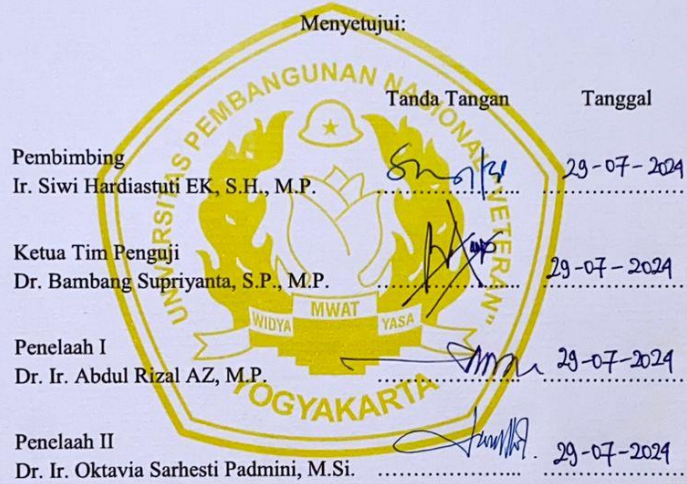 Menyetujui:
Tanda Tangan Tanggal
Pembimbing
Ir. Siwi Hardiastuti EK, S.H., M.P. .................... 29-07-2024
Ketua Tim Penguji
Dr. Bambang Supriyanta, S.P., M.P. .................... 29-07-2024
Penelaah I
Dr. Ir. Abdul Rizal AZ, M.P. .................... 29-07-2024
Penelaah II
Dr. Ir. Oktavia Sarhesti Padmini, M.Si. .................... 29-07-2024
UNIVERSITAS PEMBANGUNAN NASIONAL "VETERAN"
WIDYA MWAT YASA
YOGYAKARTA